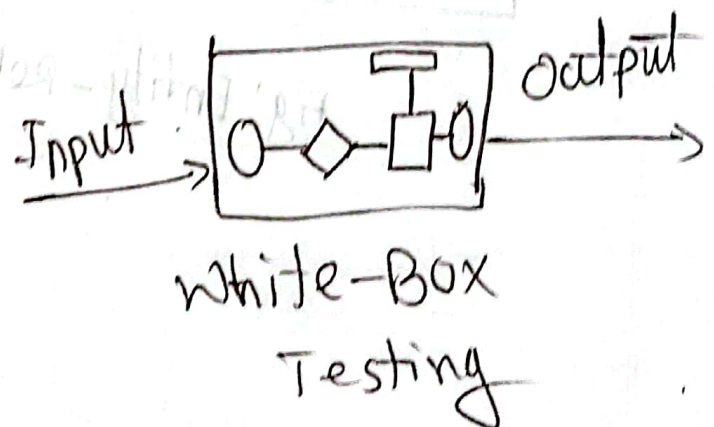 Input
Output
White-Box
Testing